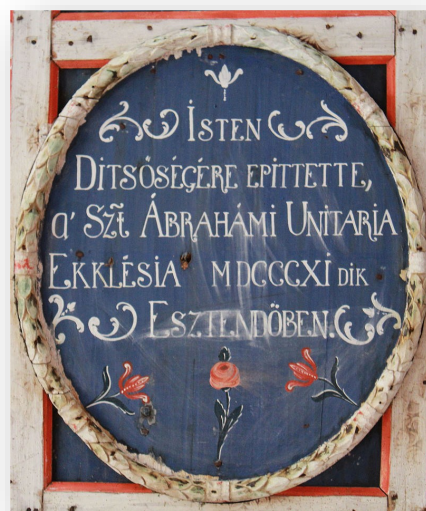 ISTEN
DITSŐSÉGÉRE EPITTETTE,
a' SZT̃ ÁBRAHÁMI UNITARIA
EKKLÉSIA MDCCCXI DIK
ESZTENDŐBEN.